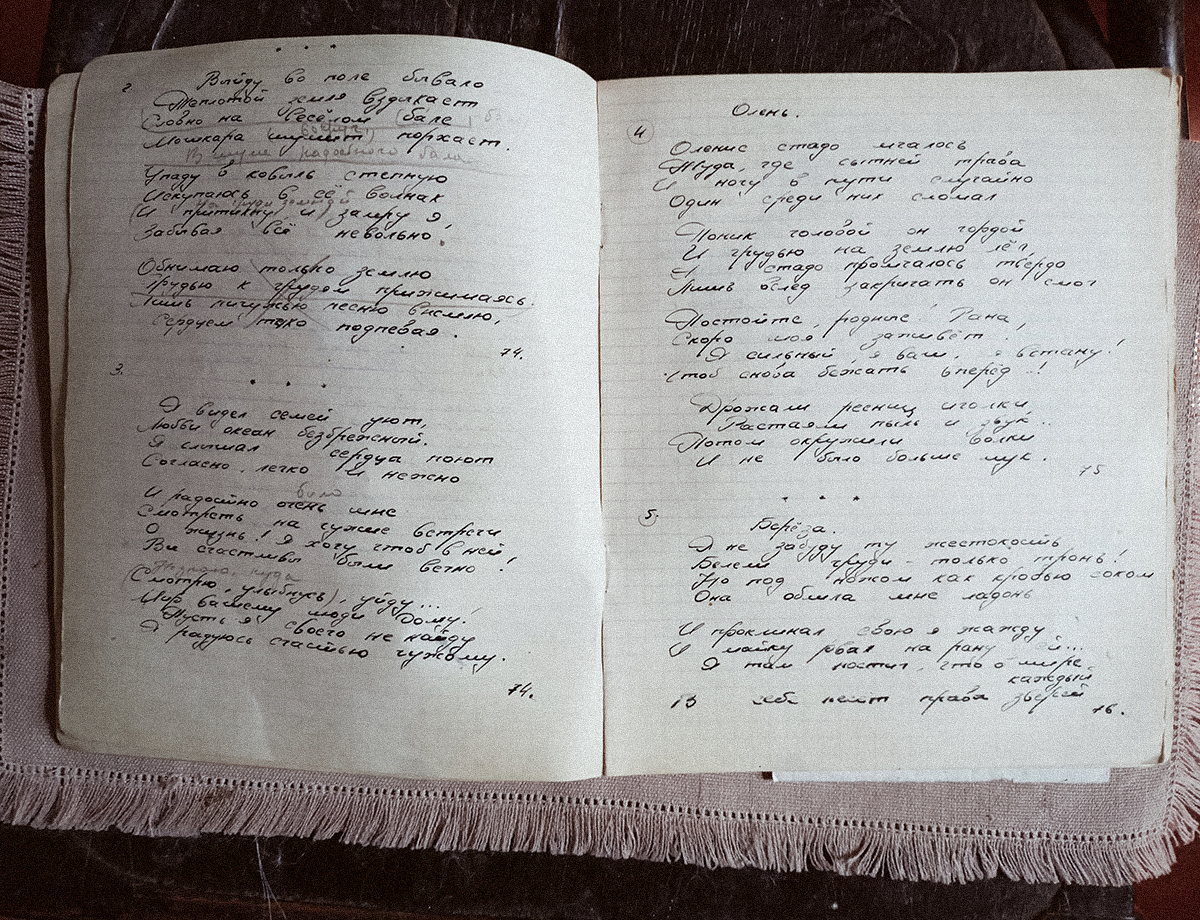 * * *
2
Выйду во поле бывало
Теплотой земля вздыхает
Словно на весёлом (бале,
вокруг,)
Мошкара шумит порхает.
Упаду в ковыль степную
Искупаюсь в её волнах
на груди земной
(И притихну и) замру я,
Забывая всё невольно.
Обнимаю только землю
Грудью к грудям прижимаясь.
Лишь пичужью песню внемлю,
Сердцем тихо подпевая.
74.
3.
* * *
Я видел семей уют,
Любви океан безбрежный.
Я слышал сердца поют
Согласно, легко и нежно
было
И радостно очень мне
Смотреть на чужие встречи
О жизнь! Я хочу чтоб в ней
Вы счастливы были вечно!
куда
(Смотрю, улыбнусь), уйду...
Мир вашему люди дому!
Пусть я своего не найду
Я радуюсь счастью чужому.
74.
Олень.
4
Оленье стадо мчалось
Туда, где сытней трава
И ногу в пути случайно
Один среди них сломал
Поник головой он гордой
И грудью на землю лёг,
А стадо промчалось твёрдо
Лишь вслед закричать он смог
Постойте, родные! Рана,
Скоро моя заживёт.
Я сильный, я ваш, я встану!
Чтоб снова бежать вперёд..!
Дрожали ресниц иголки
Растаяли пыль и звук..
Потом окружили волки
И не было больше мук.
75
* * *
5.
Берёза.
Я не забуду ту жестокость
Белеет груди - только тронь!
Но под ножом как кровью соком
Она облила мне ладонь
И проклинал свою я жажду
И майку рвал на рану ей...
Я там постиг, что в мире
каждый
В себе несёт права зверей
76.